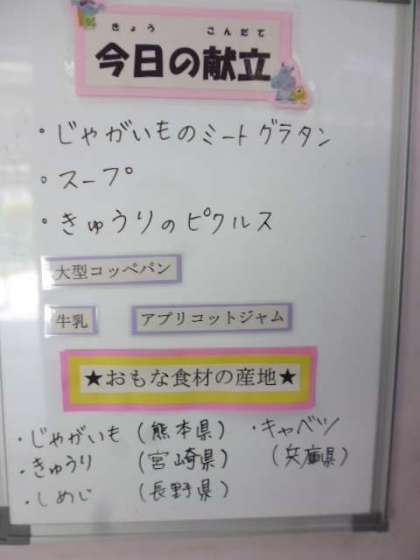 きょう こんだて
今日の献立
・じゃがいものミートグラタン
・スープ
・きゅうりのピクルス
大型コッペパン
牛乳 アプリコットジャム
★おもな食材の産地★
・じゃがいも（熊本県） ・キャベツ
・きゅうり （宮崎県） （兵庫県）
・しめじ （長野県）